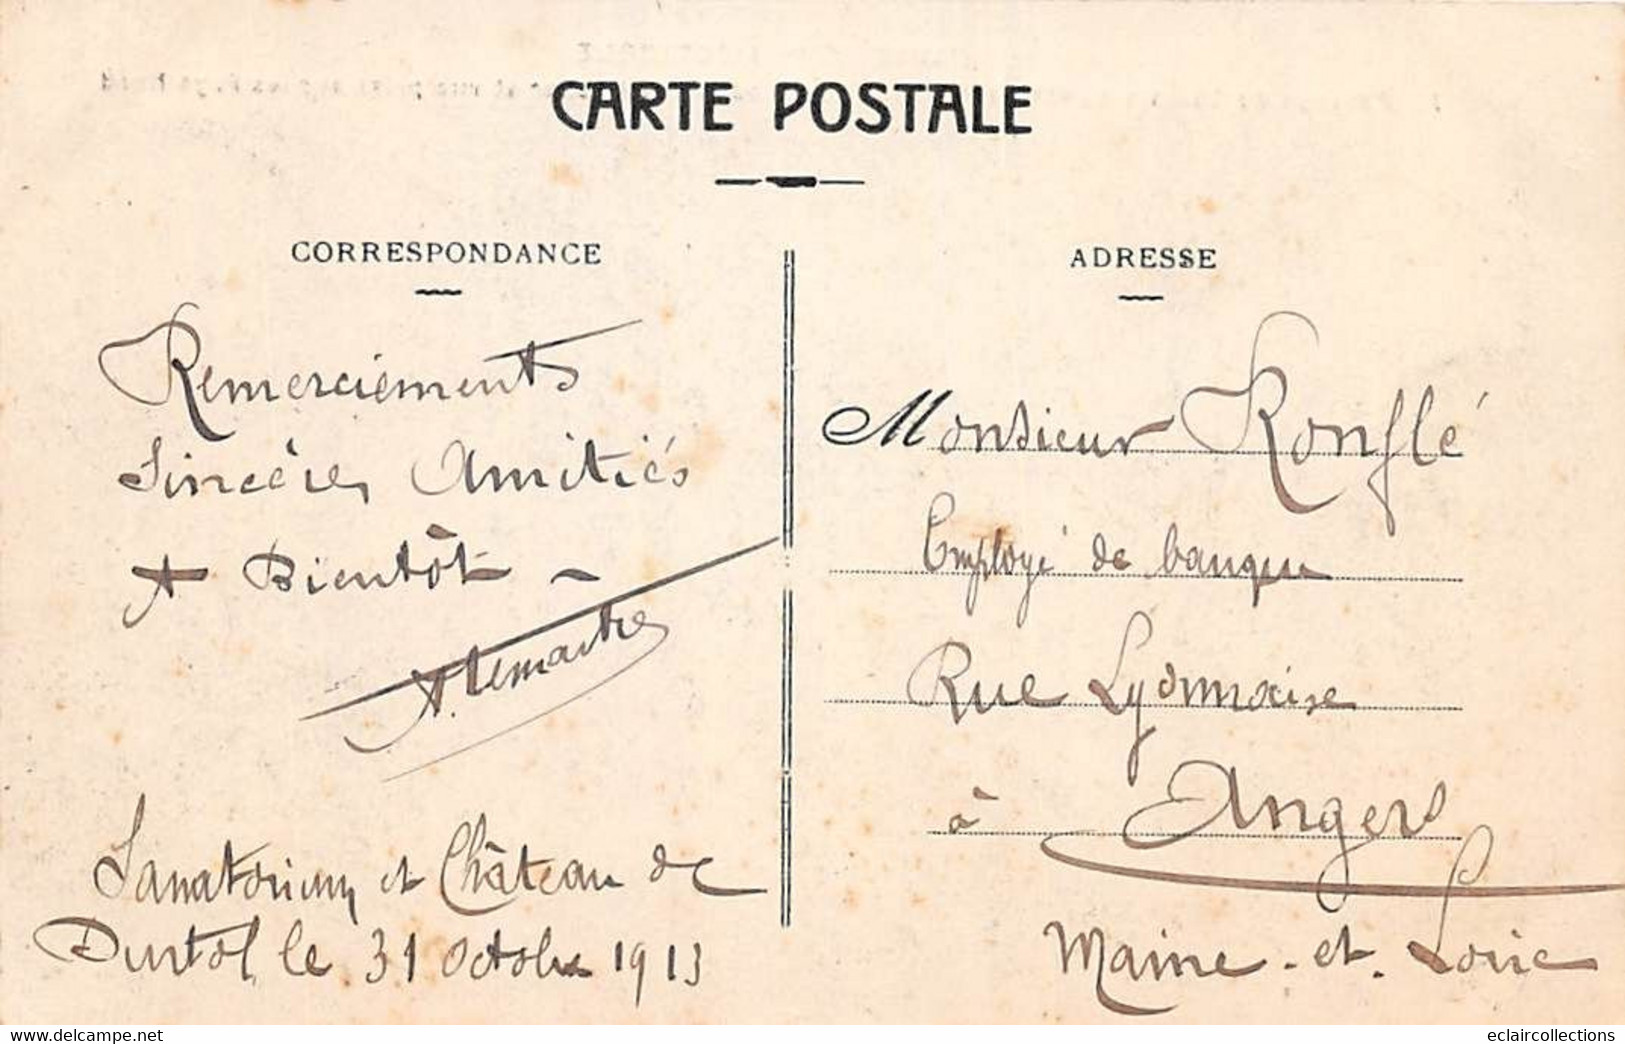 CARTE POSTALE
CORRESPONDANCE
ADRESSE
Remerciements
Sincères Amitiés
A Bientôt -
A. Lemaitre
Sanatorium et Château de
Durtol le 31 Octobre 1913
Monsieur Ronflé
Employé de banque
Rue Lyonnaise
à Angers
Maine-et-Loire
www.delcampe.net
eclaircollections